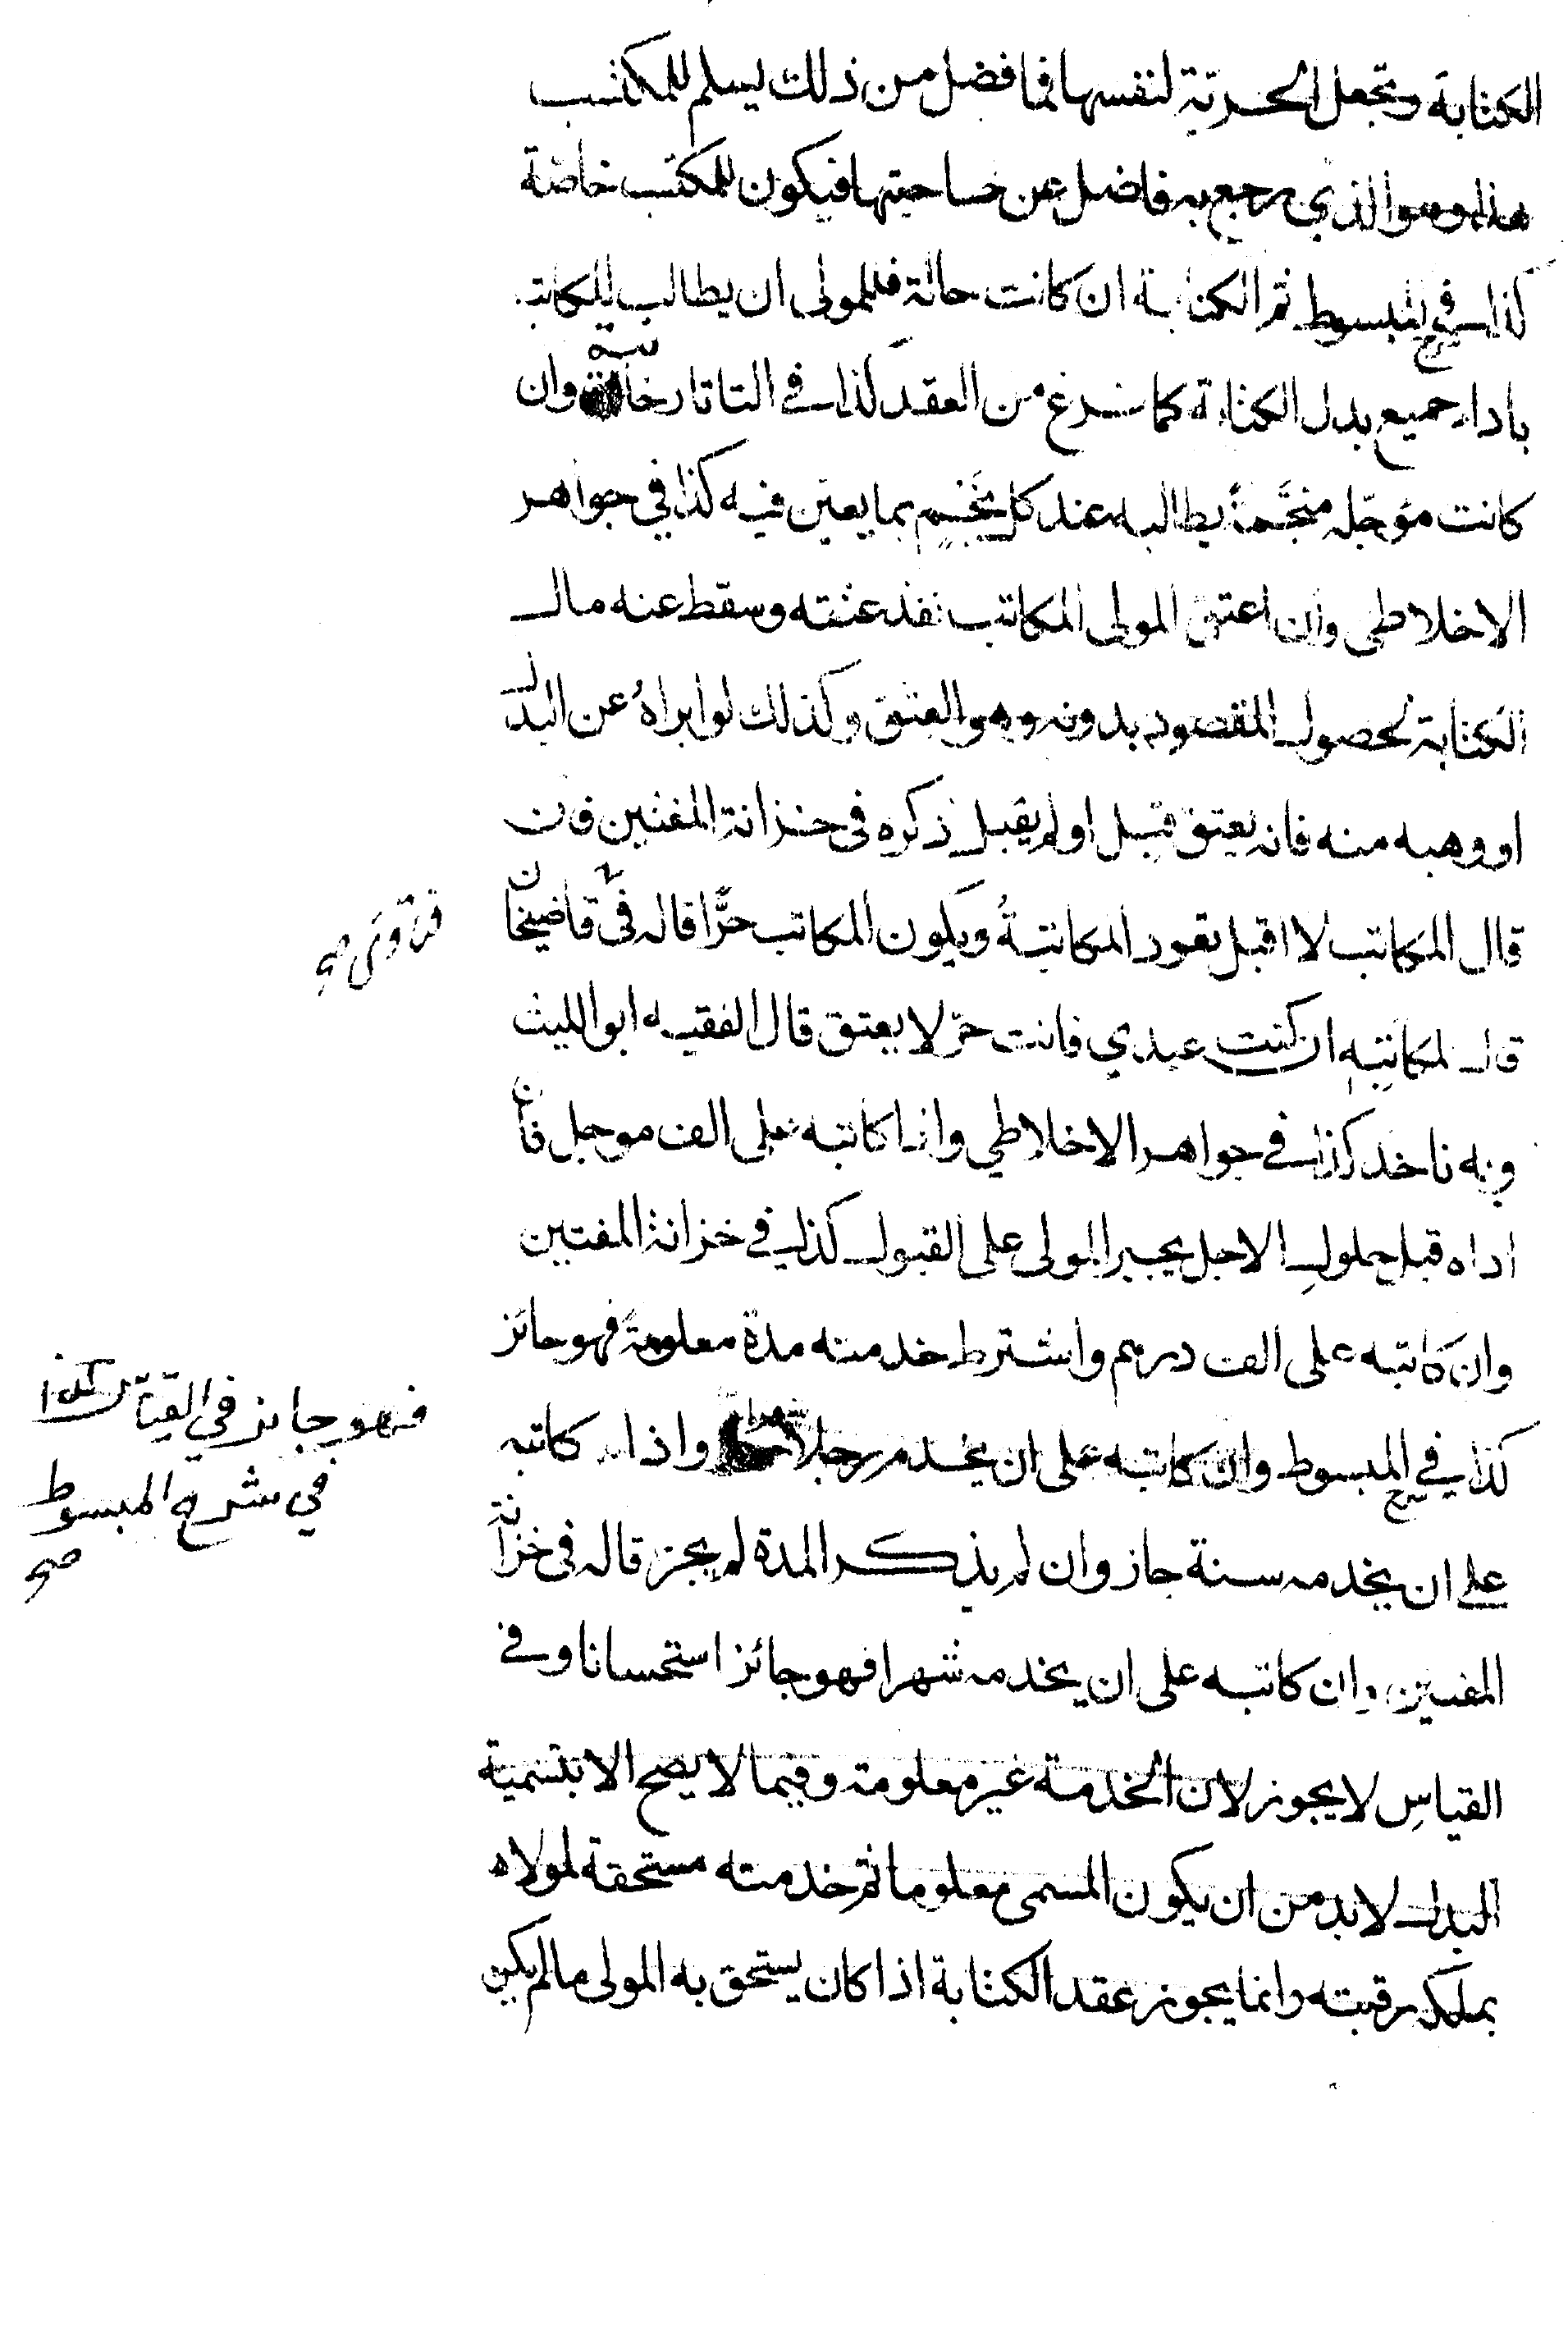 الكتابة وتجعل الحرية لنفسها فما فضل من ذلك يسلم للمكتسب
هذا وهو الذي رجع به فاضل عن صاحبتها فيكون للمكتسب خاصة
كذا في شرح المبسوط ثم الكتابة ان كانت حالة فللمولى ان يطالب المكاتب
باداء جميع بدل الكتابة كما فرغ من العقد كذا في التاتارخانية وان
كانت مؤجله منجمة يطالبه عند كل نجم بما يعين فيه كذا في جواهر
الاخلاطي وان اعتق المولى المكاتب نفذ عتقه وسقط عنه مال
الكتابة لحصول المقصود بدونه وهو العتق وكذلك لو ابراه عن البدل
او وهبه منه فانه يعتق قبل او لم يقبل ذكره في خزانة المفتين فان
قال المكاتب لا اقبل تعود المكاتبة ويكون المكاتب حرا قاله في قاضيخان
فتاوى صح
قال لمكاتبه ان كنت عبدي فانت حر لا يعتق قال الفقيه ابو الليث
وبه ناخد كذا في جواهر الاخلاطي واذا كاتبه على الف موجل فان
اداه قبل حلول الاجل يجبر المولى على القبول كذا في خزانة المفتين
وان كاتبه على الف درهم واشترط خدمته مدة معلومة فهو جائز
كذا في شرح المبسوط وان كاتبه على ان يخدم رجلا شهرا واذا كاتبه
فهو جايز في القياس كذا
في شرح المبسوط
صح
على ان يخدمه سنة جاز وان لم يذكر المدة لم يجز قاله في خزانة
المفتين وان كاتبه على ان يخدمه شهرا فهو جائز استحسانا وفي
القياس لا يجوز لان الخدمة غير معلومة وفيما لا يصح الا بتسمية
البدل لا بد من ان يكون المسمى معلوما ثم خدمته مستحقة لمولاه
بملكه رقبته وانما يجوز عقد الكتابة اذا كان يستحق به المولى ما لم يكن